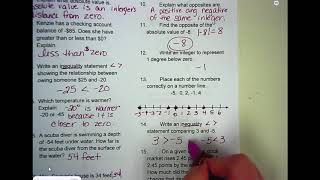 absolute value is an integer's
distance from zero.
Kenzie has a checking account
balance of -$85. Does she have
greater than or less than $0?
Explain
less than $0
Write an inequality statement < >
showing the relationship between
owing someone $25 and -20.
-25 < -20
Which temperature is warmer?
Explain -20° is warmer
-20 or -45 because it is
closer to zero.
A scuba diver is swimming a depth
of -54 feet under water. How far is
the scuba diver from the surface of
the water? 54 feet
Explain what opposites are.
A positive and negative
of the same integer.
11. Find the opposite of the
absolute value of -8. |-8| = 8
-8
12. Write an integer to represent
1 degree below zero
-1
13. Place each of the numbers
correctly on a number line.
-5, 0, 2, -1, 4
14. Write an inequality < >
statement comparing 3 and -5.
3 > -5 -5 < 3
15. On a given
market rose 2.45 points
2.45 points